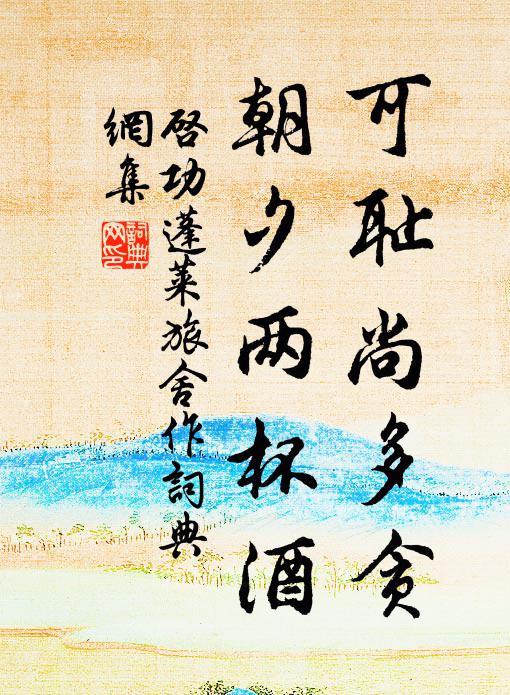 可耻尚多贪
朝夕两杯酒
启功蓬莱旅舍作词典
网集
词典网印